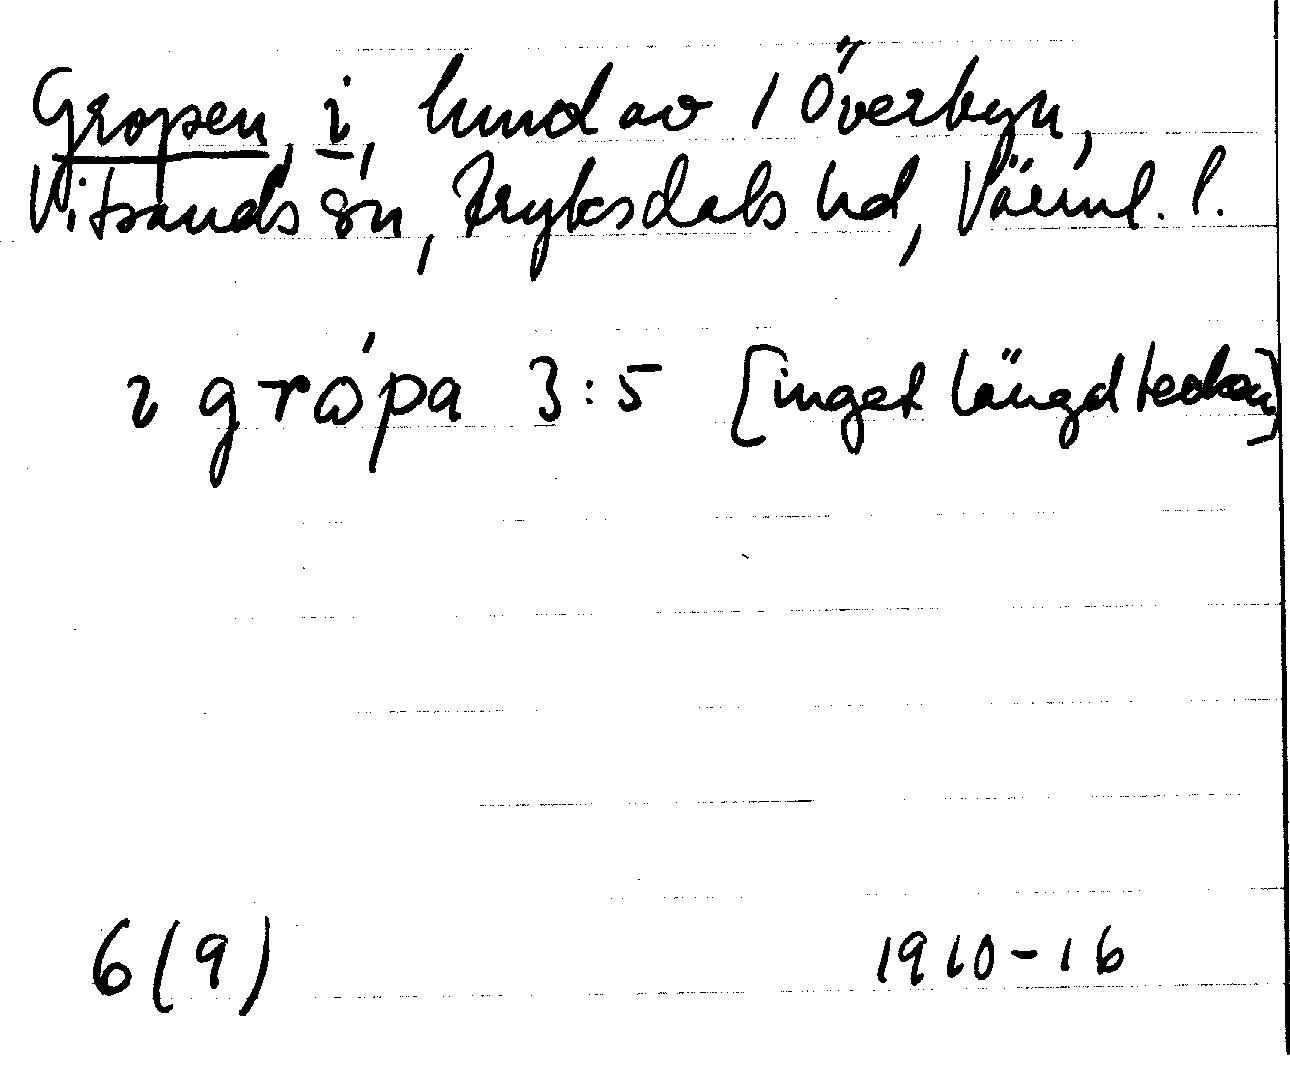 Gropen, i, hmd av 1 Överbyn,
Vitsands sn, Fryksdals hd, Värml. l.
ı grópa 3:5 [inget längdtecken]
6(9)
1910-16